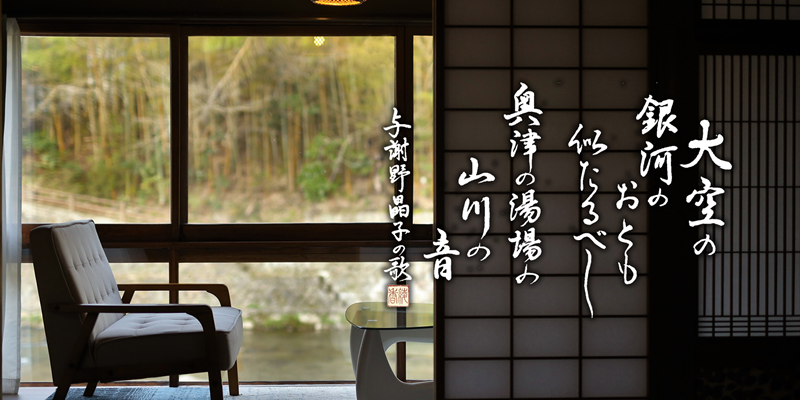 大空の
銀河の
おとも
似たるべし
奥津の湯場の
山川の
音
与謝野晶子の歌